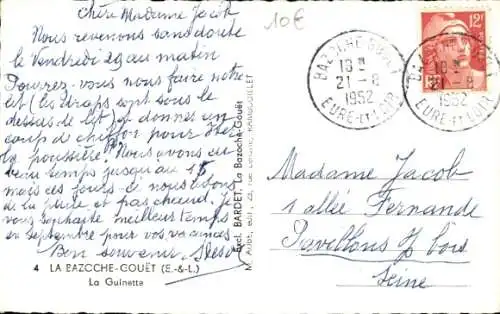 Chère Madame Jacob
Nous revenons sans doute
le Vendredi 29 au matin
Pouvez-vous nous faire notre
lit (les draps sont sous le
dessus de lit) et donner un
coup de chiffon pour ôter
la poussière. Nous avons eu
beau temps jusqu'au 15
mais ces jours-ci nous avons
de la pluie et pas chaud. Je
vous souhaite meilleur temps
en septembre pour vos vacances
Bon souvenir
4 LA BAZOCHE-GOUËT (E.-&-L.)
La Guinette
Excl. BARDET, La Bazoche-Gouët
RAMBOUILLET
10€
12F
BAZOCHE GOUET
18H
21-8
1952
EURE-ET-LOIR
BAZOCHE GOUET
18H
21-8
1952
EURE-ET-LOIR
Madame Jacob
1 allée Fernande
Pavillons s/ bois
Seine